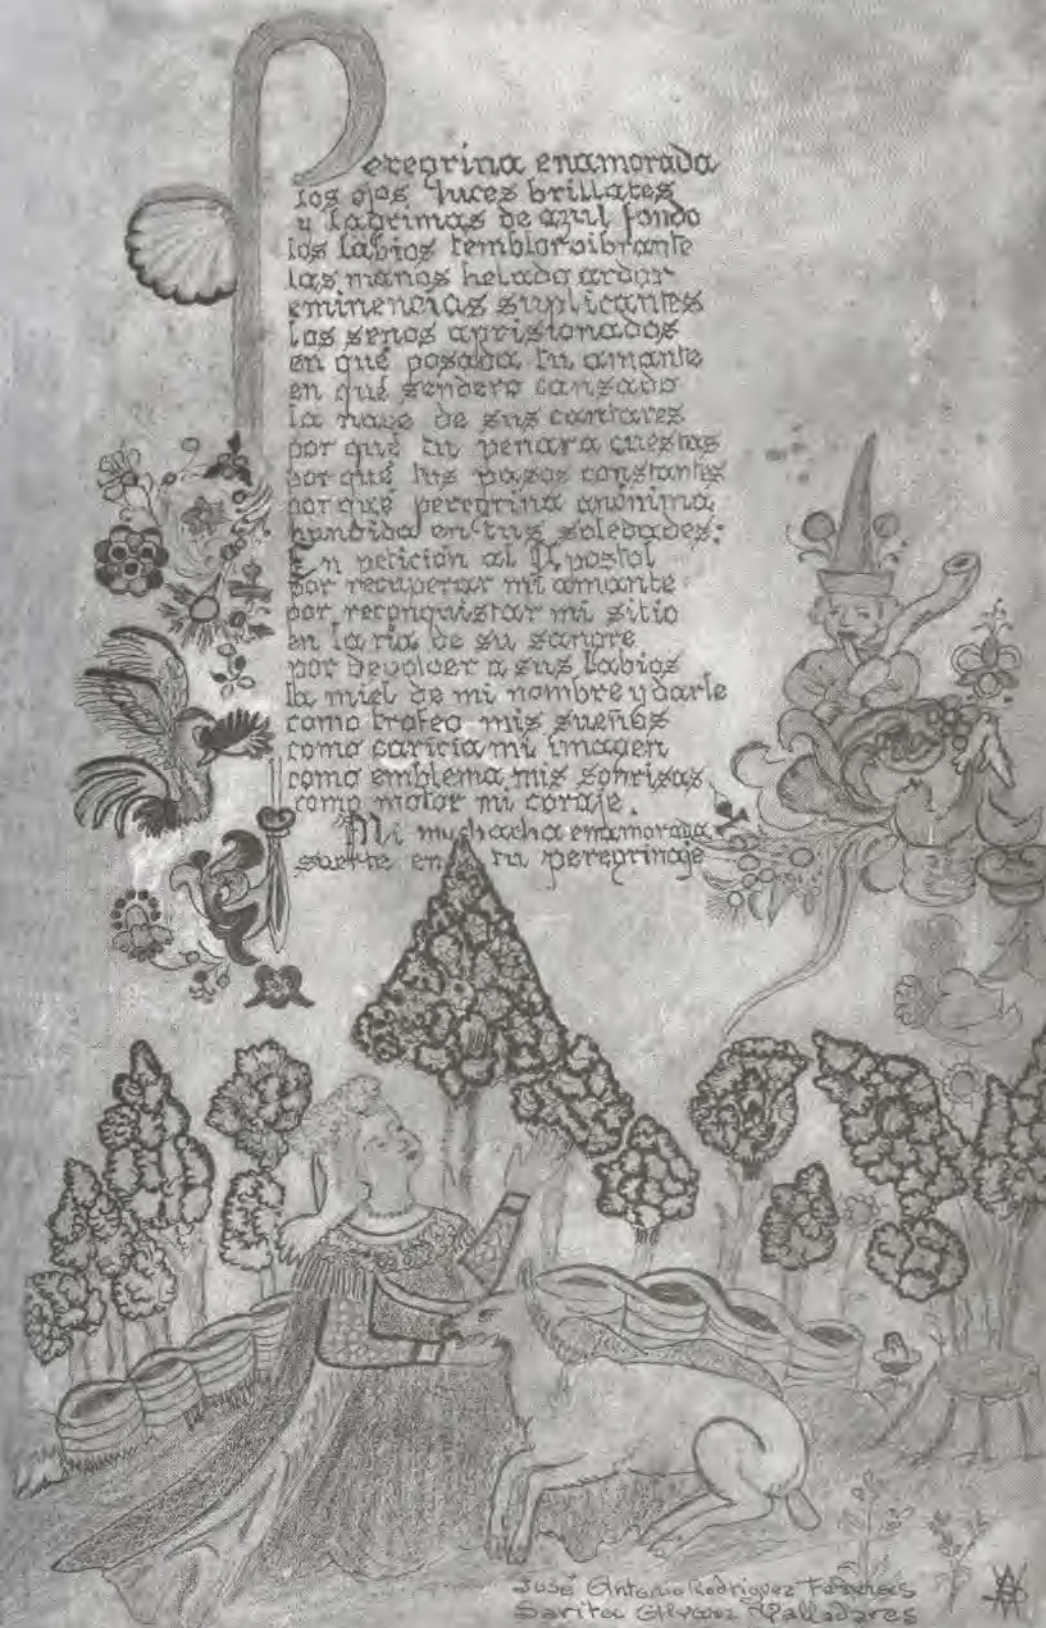 Peregrina enamorada
los ojos luces brillates
y lágrimas de azul fondo
los labios temblor vibrante
las manos helado ardor
eminencias suplicantes
los senos aprisionados
en qué posada tu amante
en qué sendero cansado
la nave de sus cantares
por qué tu penar a cuestas
por qué tus pasos constantes
por qué peregrina anónima
hundida en tus soledades:
En petición al Apostol
por recuperar mi amante
por reconquistar mi sitio
en la ria de su sangre
por devolver a sus labios
la miel de mi nombre y darle
como trofeo mis sueños
como caricia mi imagen
como emblema mis sonrisas
como motor mi coraje.
Mi muchacha enamorada
suerte en tu peregrinaje
José Antonio Rodriguez
Sarita Valladares